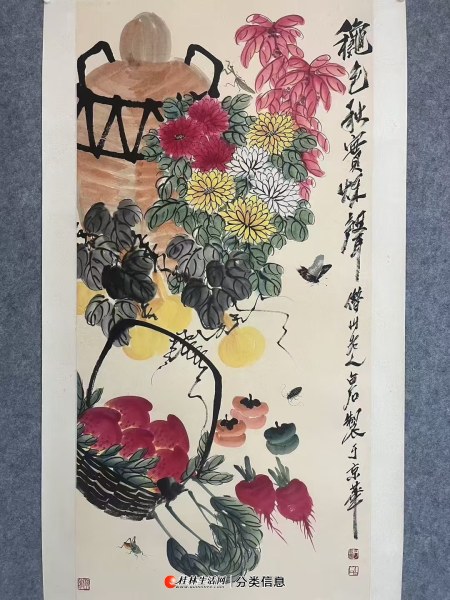 龝色秋實秌聲 借山老人白石製于京華
桂林生活网 | 分类信息